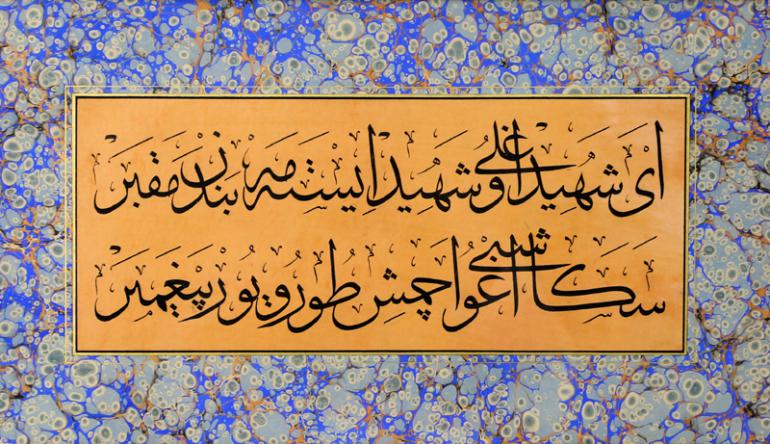 ای شهید اوغلی شهید ایسته مه بندن مقبر
سکا آغوشنی آچمش طورویور پیغمبر